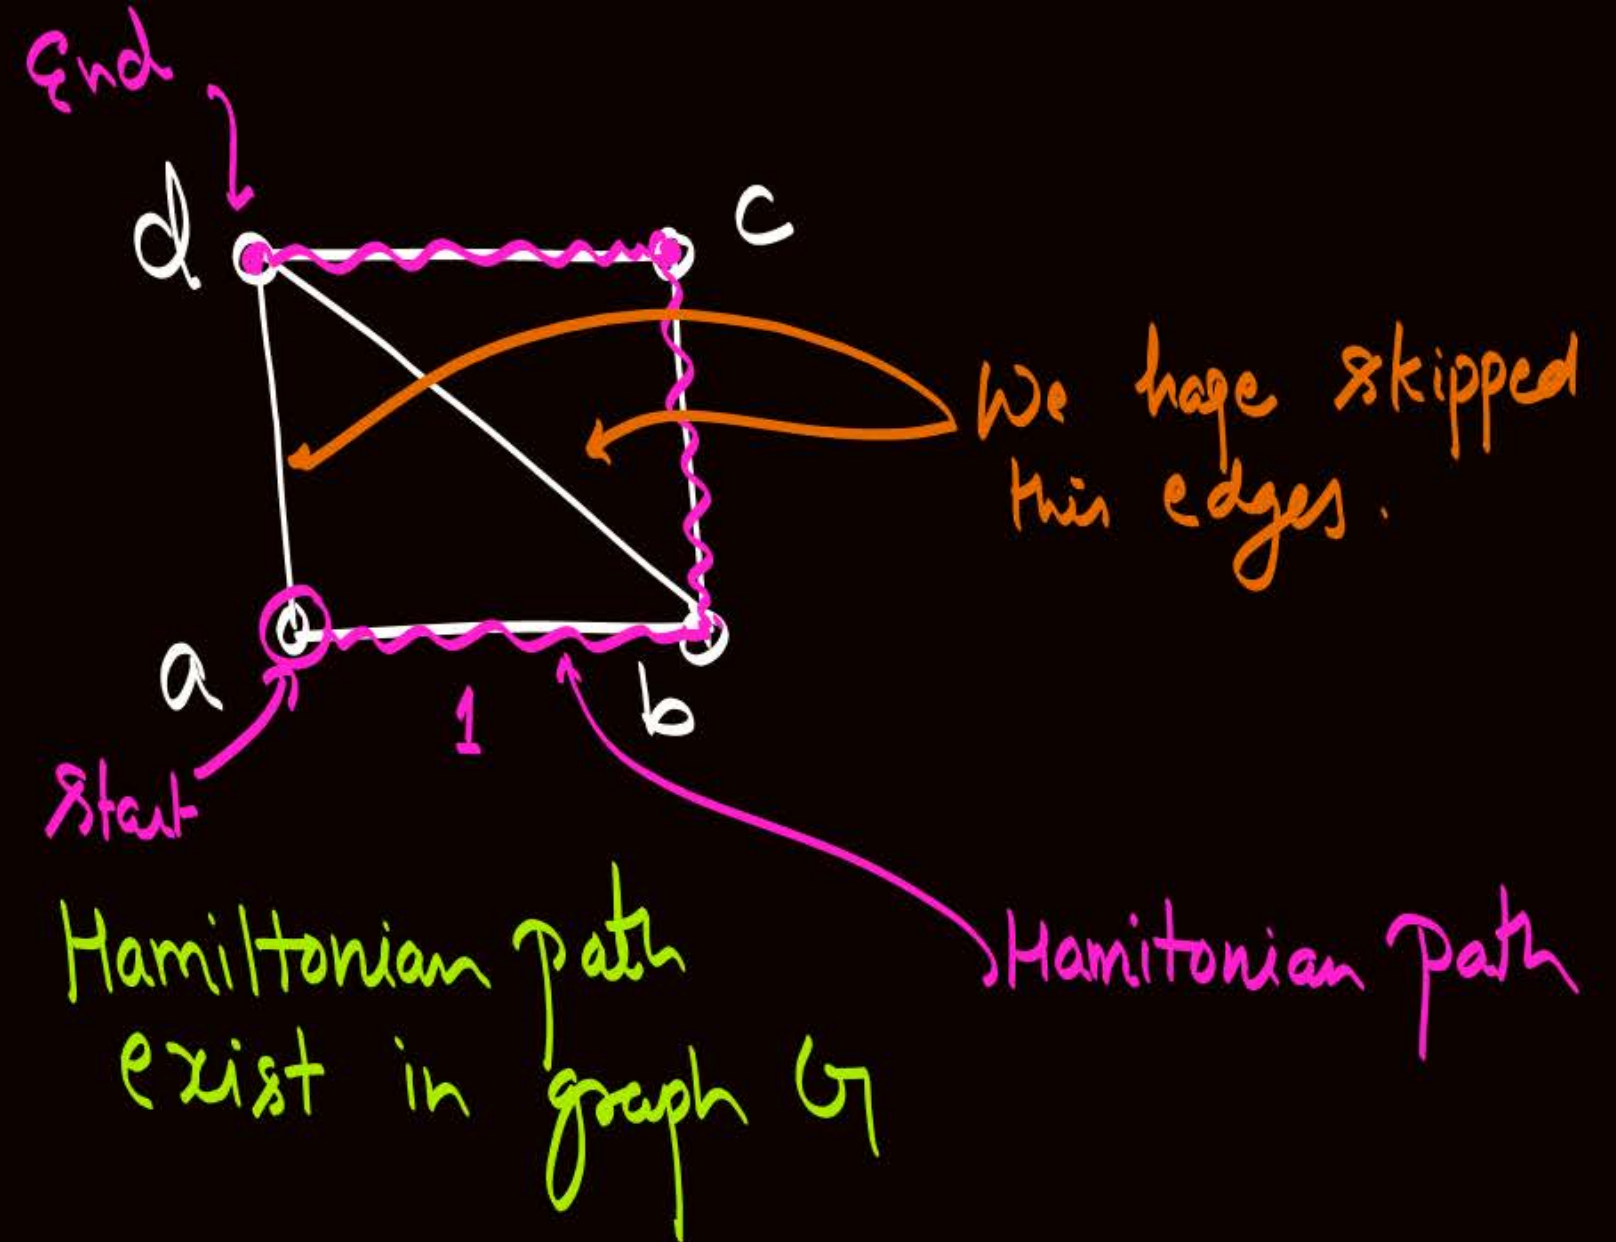 End
d
c
We have skipped
this edges.
a
b
1
Start
Hamiltonian path
exist in graph G
Hamitonian path